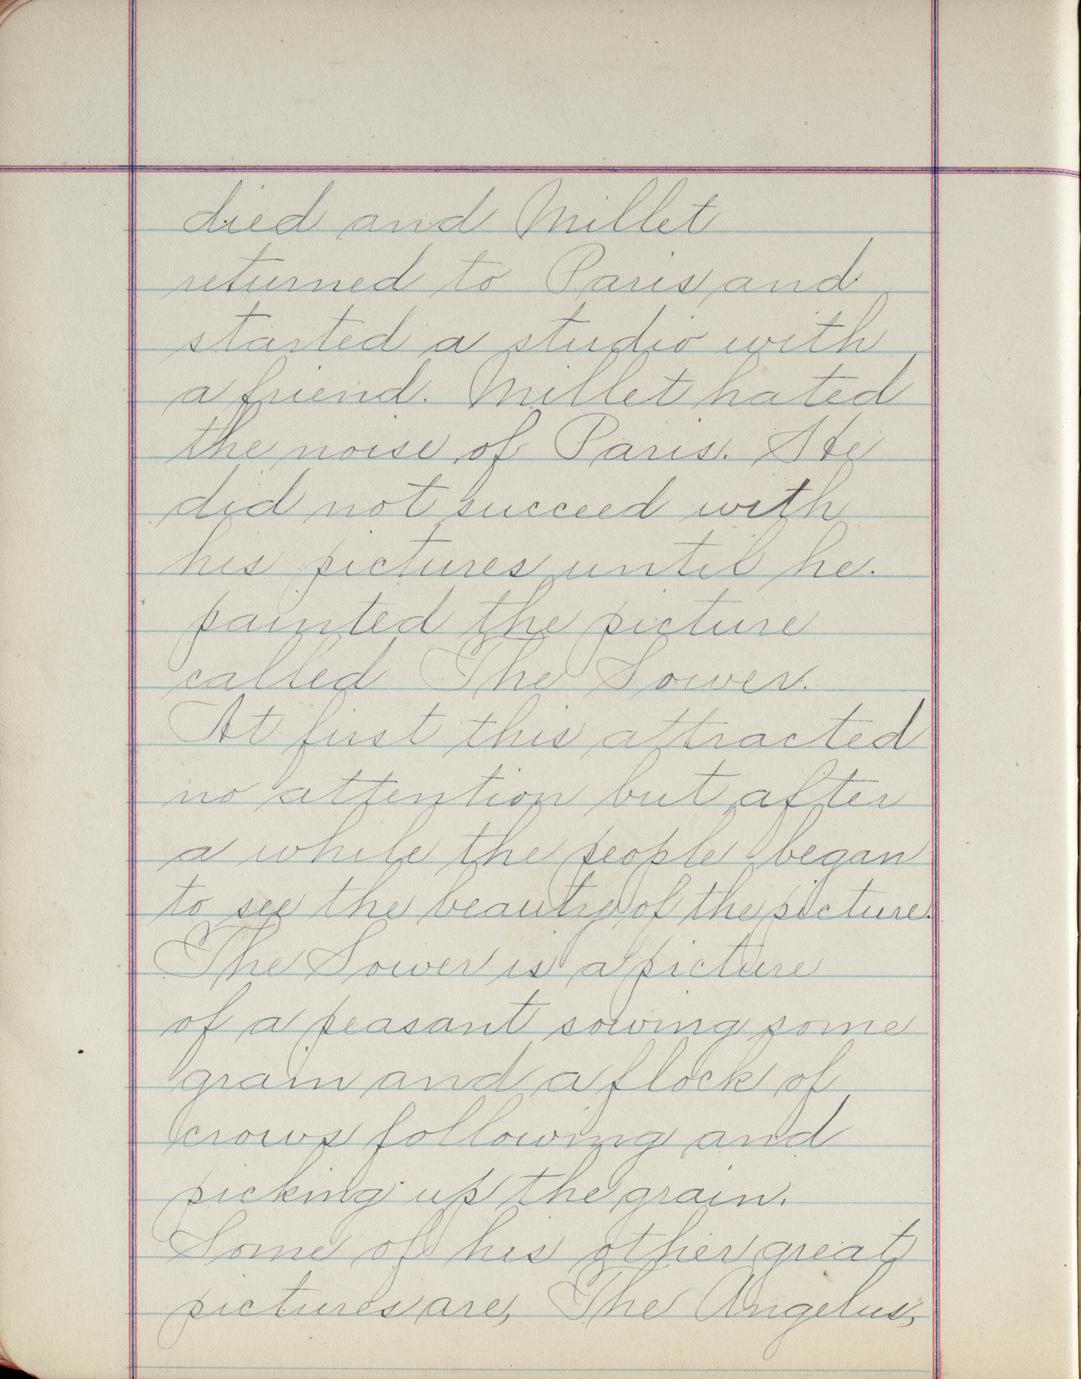 died and Millet
returned to Paris and
started a studio with
a friend. Millet hated
the noise of Paris. He
did not succeed with
his pictures until he.
painted the picture
called The Sower.
At first this attracted
no attention but after
a while the people began
to see the beauty of the picture.
The Sower is a picture
of a peasant sowing some
grain and a flock of
crows following and
picking up the grain.
Some of his other great
pictures are, The Angelus,